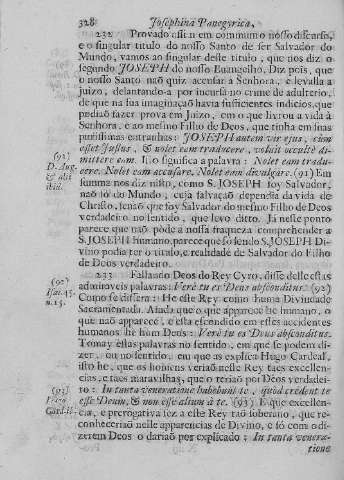 328 Josephina Panegyrica,
232 Provado assi n em commum o nosso discurso,
e o singular titulo do nosso Santo de ser Salvador do
Mundo, vamos ao singular deste titulo, que nos diz o
segundo JOSEPH do nosso Euangelho. Diz pois, que
o nosso Santo naõ quiz accusar á Senhora, e levalla a
juizo, delatando-a por incursa no crime de adulterio,
de que na sua imaginaçaõ havia sufficientes indicios, que
podiaõ fazer prova em Juizo, em o que livrou a vida á
Senhora, e ao mesmo Filho de Deos, que tinha em suas
purissimas entranhas: JOSEPH autem vir ejus, cùm
esset Justus, & nolet eam traducere, voluit occultè di-
mittere eam. Isto significa a palavra: Nolet eam tradu-
cere. Nolet eam accusare. Nolet eam divulgare. (91) Em
summa nos diz nisto, como S. JOSEPH foy Salvador,
naõ só do Mundo, cuja salvaçaõ dependia da vida de
Christo, senaõ que foy Salvador do mesmo Filho de Deos
verdadeiro no sentido, que levo ditto. Já neste ponto
parece que naõ pòde a nossa fraqueza comprehender a
S. JOSEPH humano, parece que só sendo S. JOSEPH Di-
vino podia ter o titulo, e realidade de Salvador do Filho
de Deos verdadeiro.
233 Fallando Deos do Rey Cyro, disse delle estas
admiraveis palavras: Verè tu es Deus absconditus. (92)
Como se dissera: He este Rey como huma Divindade
Sacramentada. Ainda que o que apparece he humano, o
que naõ apparece, e està escondido em esses accidentes
humanos he hum Deos: Verè tu es Deus absconditus.
Tomay essas palavras no sentido, em que se podem di-
zer, ou no sentido, em que as explica Hugo Cardeal,
isto he, que os homens veriaõ nesse Rey taes excellen-
cias, e taes maravilhas, que o teriaõ por Deos verdadei-
ro: In tanta veneratione habebunt te, quòd credent te
esse Deum, & non esse alium à te. (93) E que excellen-
cia, e prerogativa fez a esse Rey taõ soberano, que re-
conheceriaõ nelle apparencias de Divino, e só com o di-
zerem Deos o dariaõ por explicado: In tanta venera-
tione
(91)
D. Aug.
& alii
ibid.
(92)
Isai. 45.
n. 15.
(93)
Card.